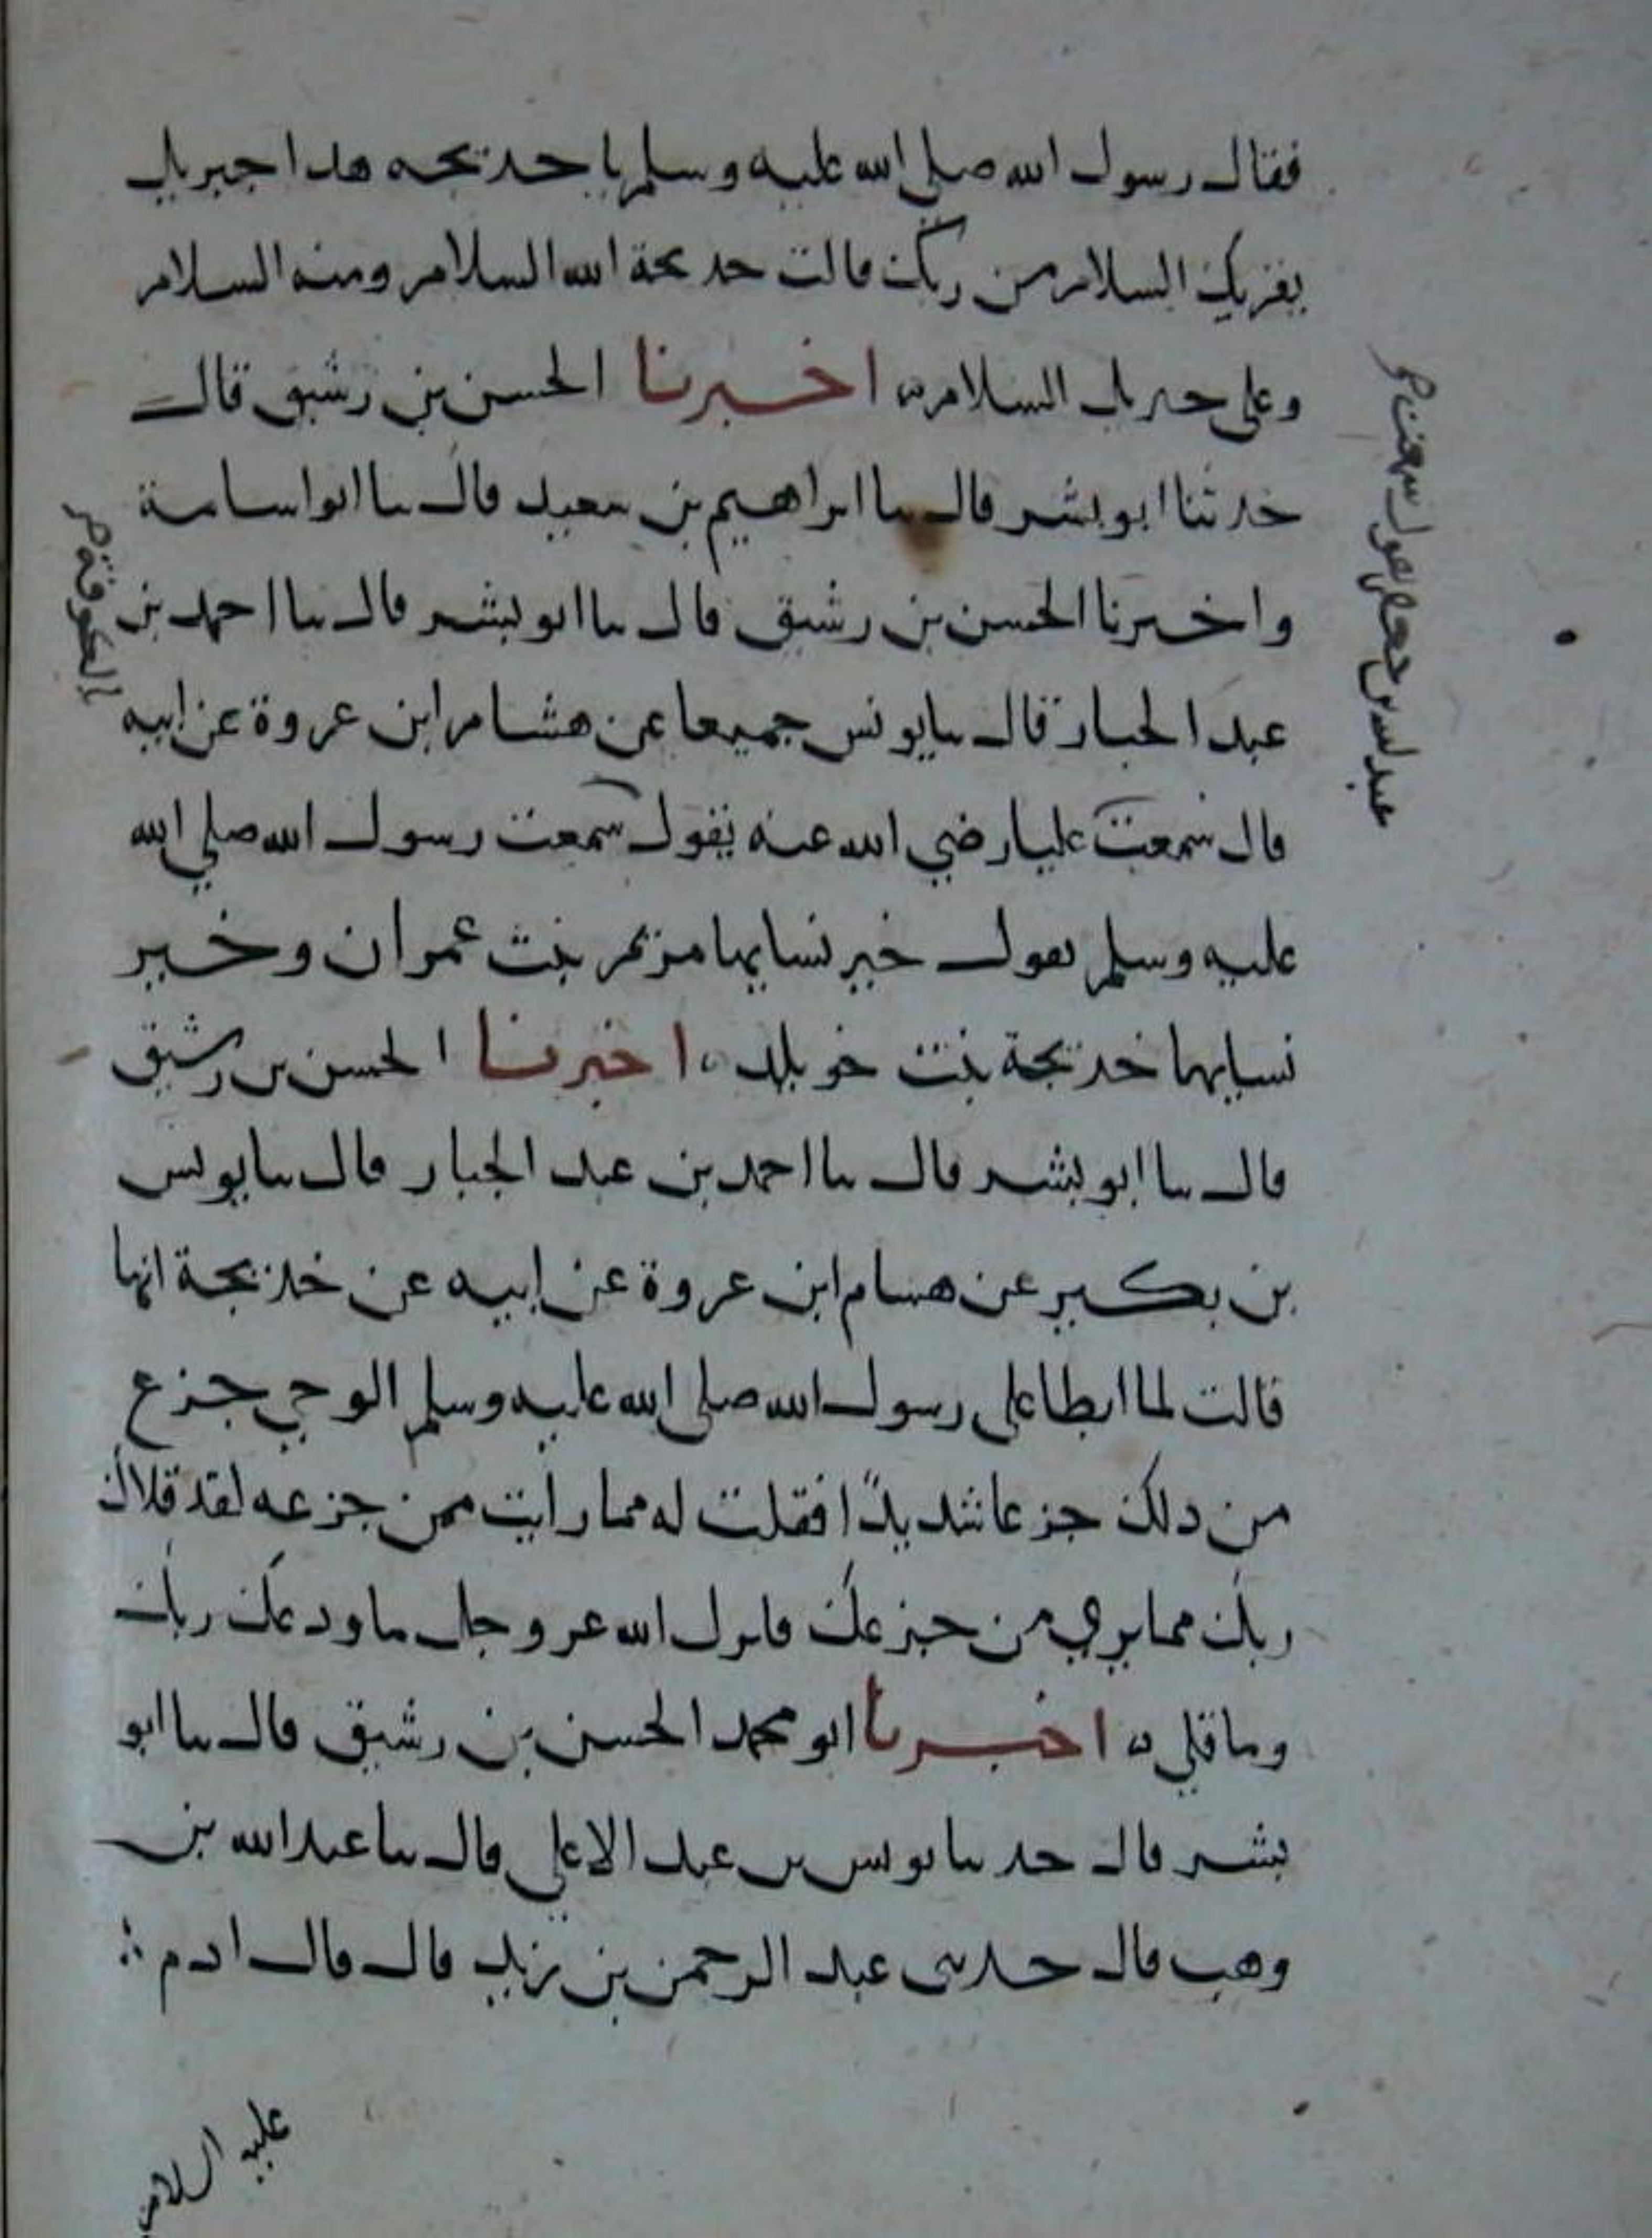 فقال رسول الله صلى الله عليه وسلم يا خديجه هذا جبريل
يقريك السلام من ربك قالت خديجة الله السلام ومنه السلام
وعلى جبريل السلام اخبرنا الحسن بن رشيق قال
حدثنا ابو بشر قال نا ابراهيم بن سعيد قال نا ابو اسامة
واخبرنا الحسن بن رشيق قال نا ابو بشر قال نا احمد بن
عبد الجبار قال نا يونس جميعا عن هشام ابن عروة عن ابيه
قال سمعت عليا رضي الله عنه يقول سمعت رسول الله صلى الله
عليه وسلم يقول خير نسايها مريم بنت عمران وخير
نسايها خديجة بنت خويلد اخبرنا الحسن بن رشيق
قال نا ابو بشر قال نا احمد بن عبد الجبار قال نا يونس
بن بكير عن هشام ابن عروة عن ابيه عن خديجة انها
قالت لما ابطا على رسول الله صلى الله عليه وسلم الوحي جزع
من ذلك جزعا شديدًا فقلت له مما رايت من جزعه لقد قلاك
ربك مما يري من جزعك فانزل الله عز وجل ما ودعك ربك
وما قلى ه اخبرنا ابو محمد الحسن بن رشيق قال نا ابو
بشر قال حدثنا يونس بن عبد الاعلى قال نا عبد الله بن
وهب قال حدثني عبد الرحمن بن زيد قال قال ادم
عليه السلام
عبد الله بن جعفر يقول سمعت
بالكوفة